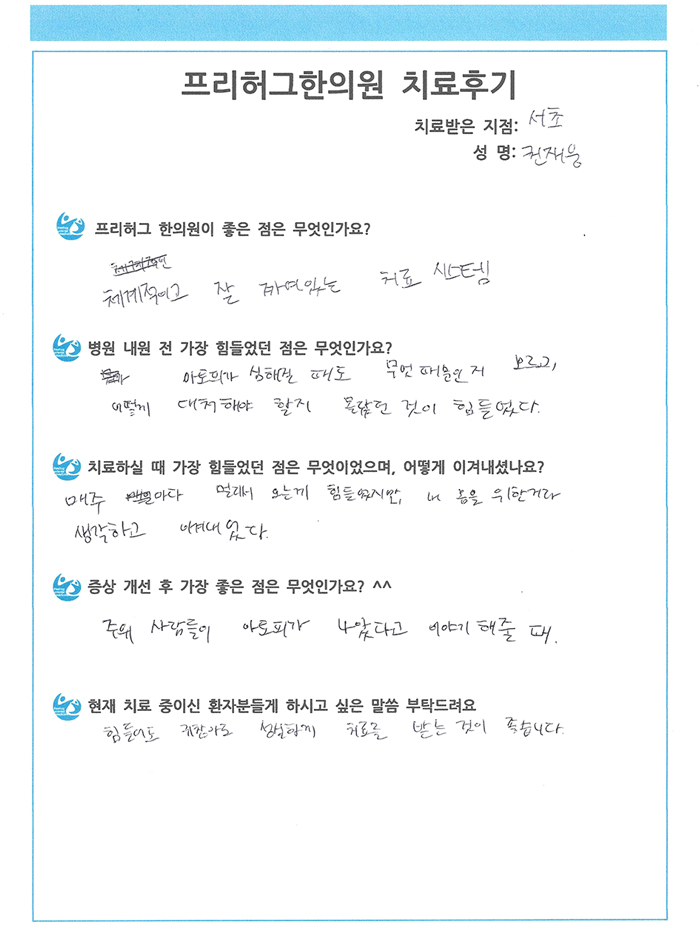 프리허그한의원 치료후기
치료받은 지점: 서초
성 명: 권재웅
프리허그 한의원이 좋은 점은 무엇인가요?
체계적이고 잘 짜여있는 치료 시스템
병원 내원 전 가장 힘들었던 점은 무엇인가요?
아토피가 심해질 때도 무엇 때문인지 모르고,
어떻게 대처해야 할지 몰랐던 것이 힘들었다.
치료하실 때 가장 힘들었던 점은 무엇이었으며, 어떻게 이겨내셨나요?
매주 마다 멀리서 오는게 힘들었지만, 내 몸을 위한거라
생각하고 이겨내었다.
증상 개선 후 가장 좋은 점은 무엇인가요? ^^
주위 사람들이 아토피가 나았다고 이야기 해줄 때.
현재 치료 중이신 환자분들게 하시고 싶은 말씀 부탁드려요
힘들어도 귀찮아도 성실하게 치료를 받는 것이 좋습니다.